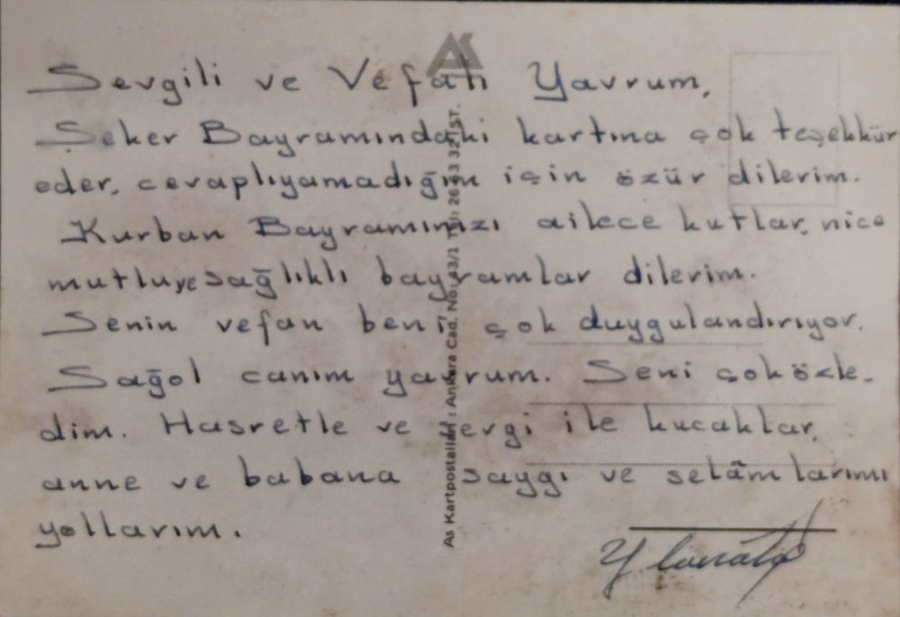 Sevgili ve Vefalı Yavrum,
Şeker Bayramındaki kartına çok teşekkür
eder, cevaplıyamadığım için özür dilerim.
Kurban Bayramınızı ailece kutlar, nice
mutlu ve sağlıklı bayramlar dilerim.
Senin vefan beni çok duygulandırıyor.
Sağol canım yavrum. Seni çok özle-
dim. Hasretle ve sevgi ile kucaklar,
anne ve babana saygı ve selâmlarımı
yollarım.
AS
As Kartpostalları: Ankara Cad. No: 43/1 İST.